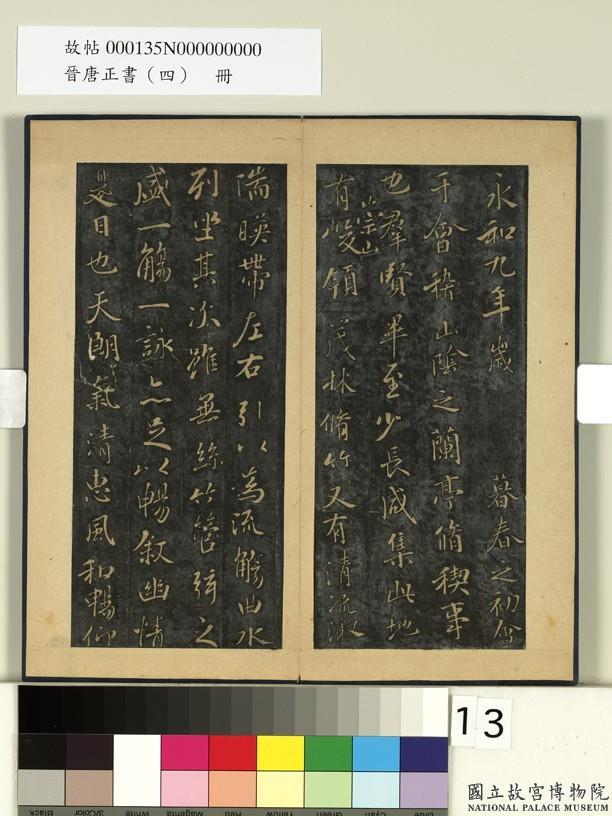 故帖000135N000000000
晉唐正書（四） 冊
永和九年歲 暮春之初會
于會稽山陰之蘭亭脩稧事
也羣賢畢至少長咸集此地
有崇山峻領茂林脩竹又有清流激
湍暎帶左右引以為流觴曲水
列坐其次雖無絲竹管弦之
盛一觴一詠亦足以暢叙幽情
是日也天朗氣清惠風和暢仰
13
Black 3/Color White Magenta Red Yellow Green Cyan Blue
國立故宮博物院
NATIONAL PALACE MUSEUM